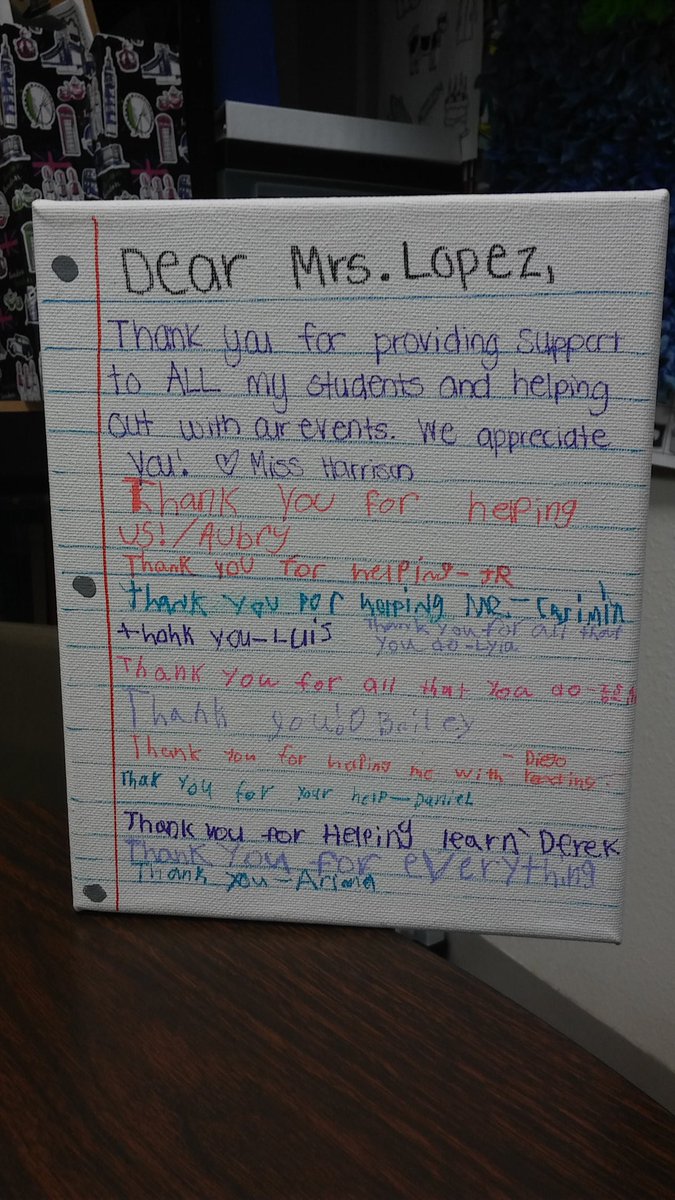 Dear Mrs. Lopez,
Thank you for providing support
to ALL my students and helping
out with our events. We appreciate
you! ♡ Miss Harrison
Thank you for helping
US!/Aubry
Thank you for helping - JR
thank you for helping me.-
thank you-Luis
Thank you for all that
you do-Lyia
Thank you for all that you do -
Thank you!
Bailey
Thank you for helping me with reading.
- Diego
Thak you for your help-Daniel
Thank you for Helping learn Derek
Thank you for everything
Thank you-Ariana